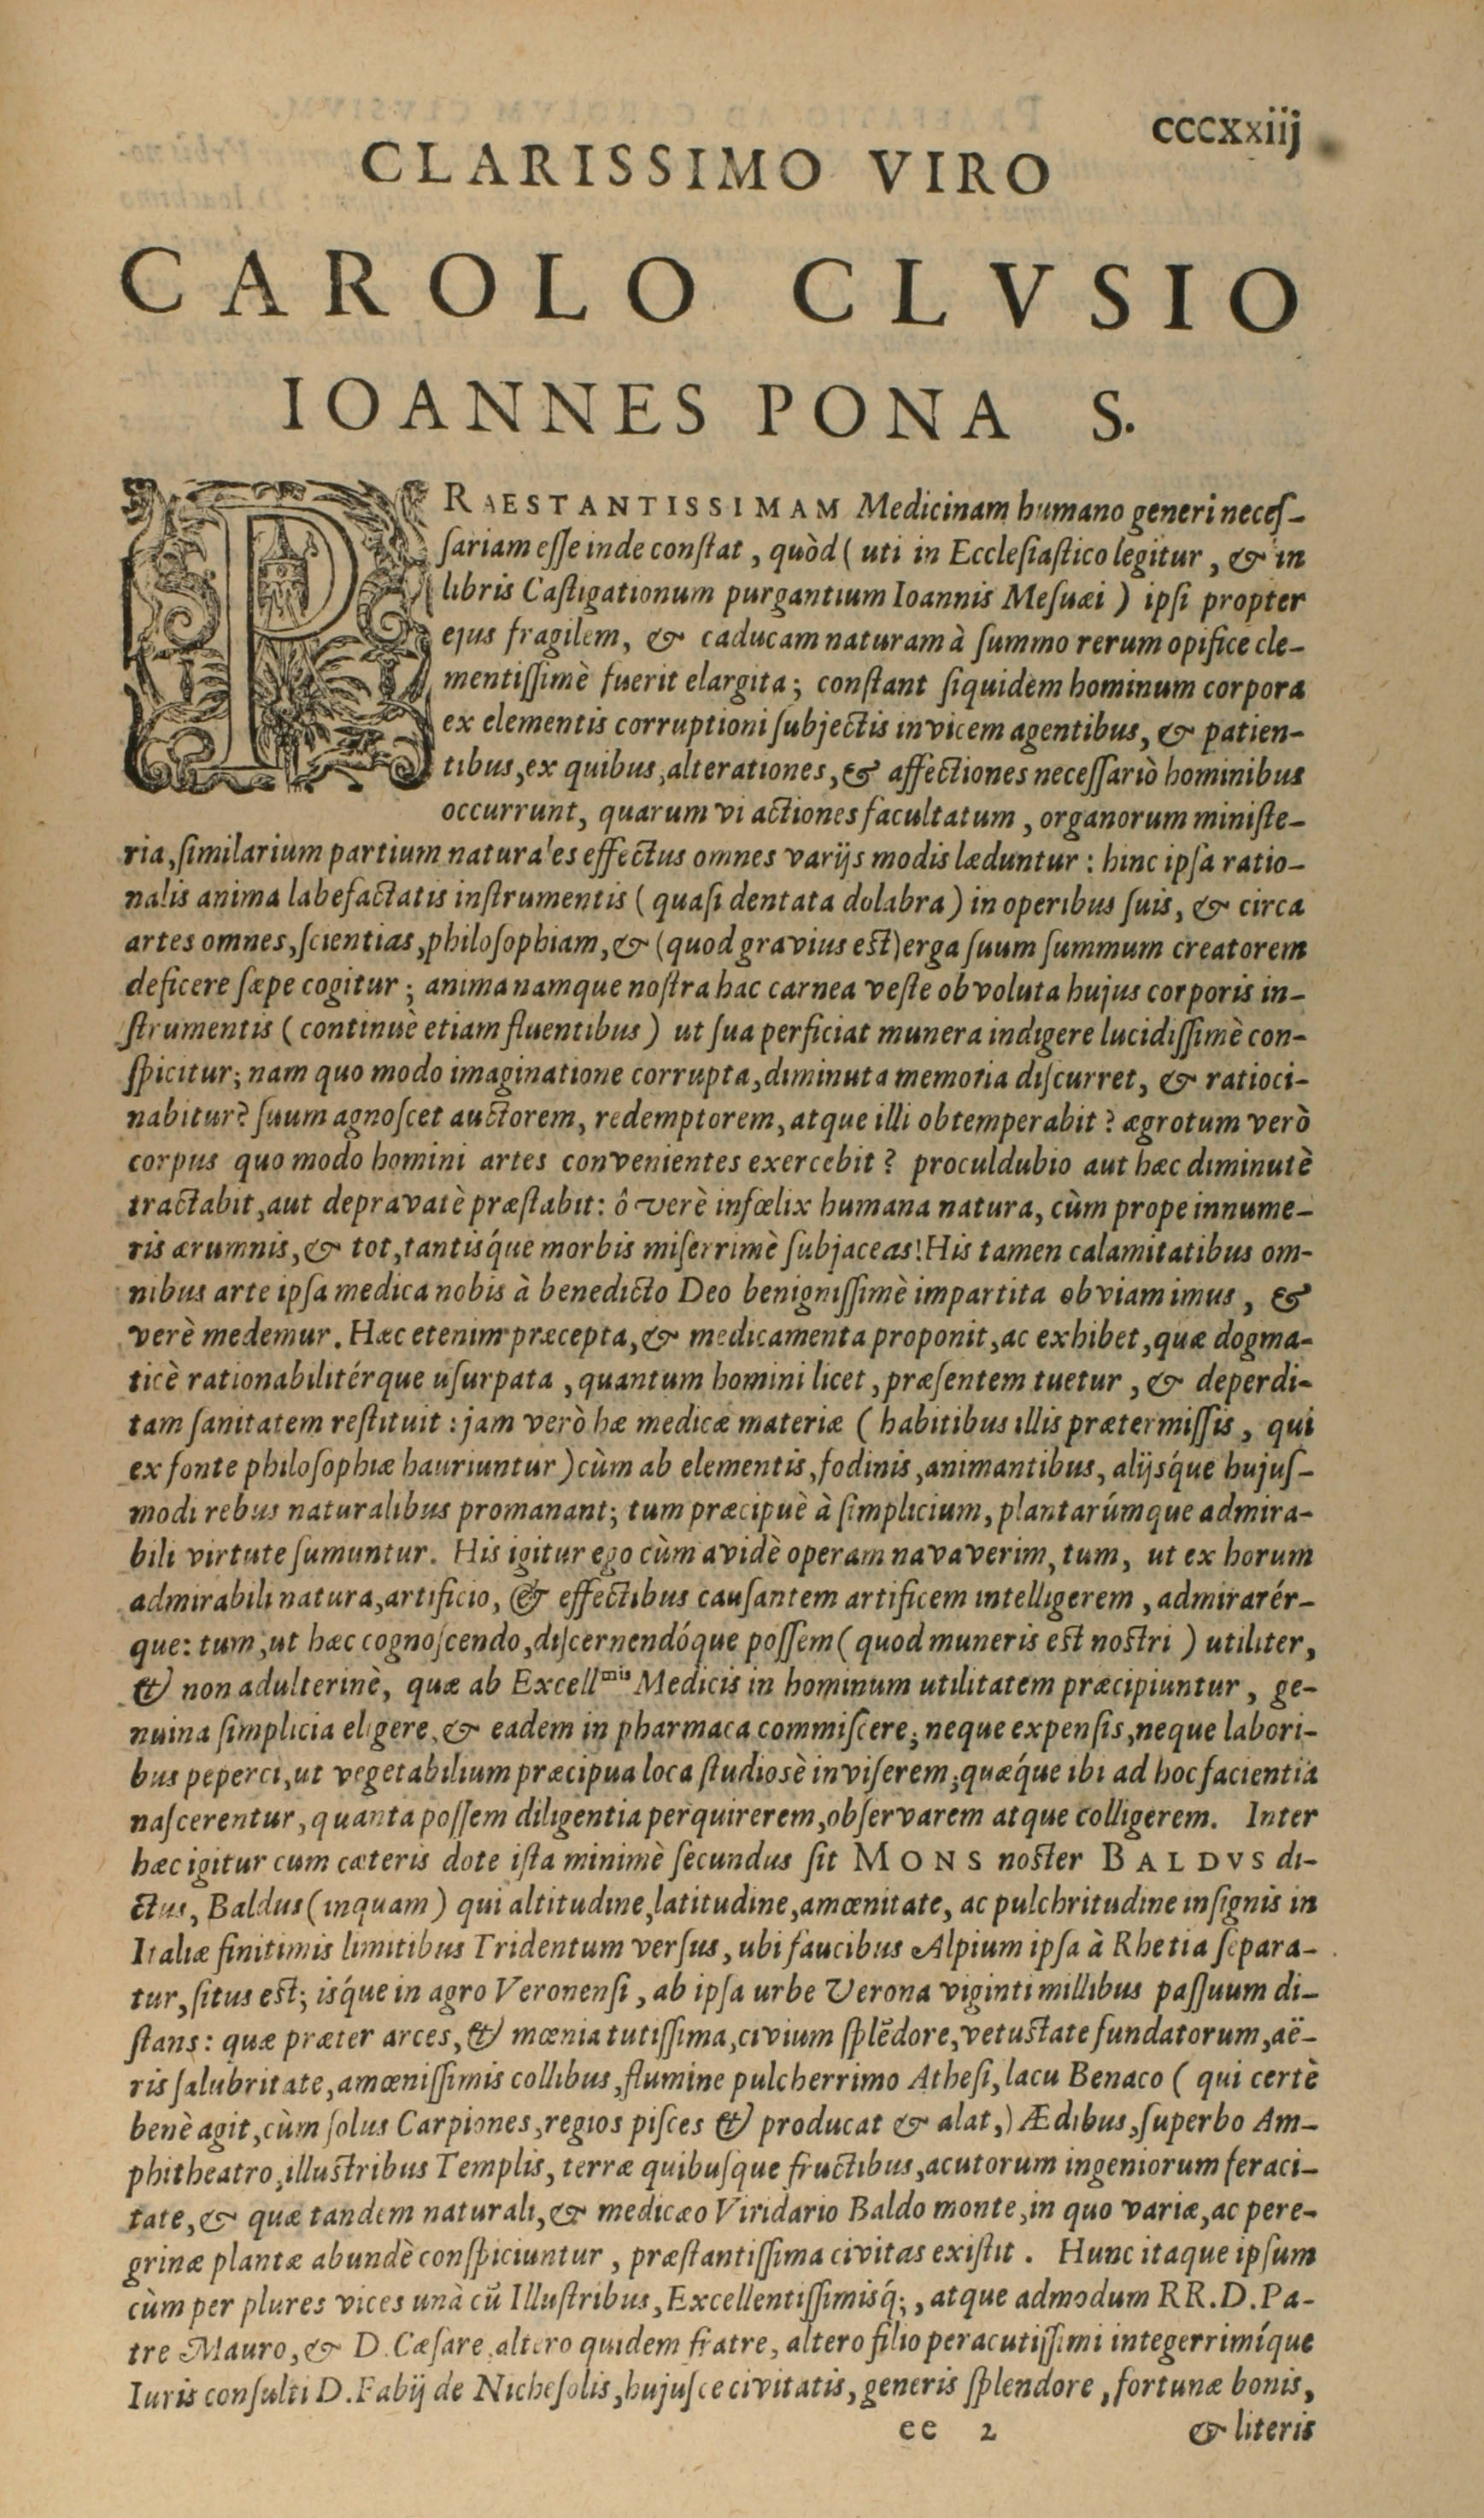 cccxxiij
CLARISSIMO VIRO
CAROLO CLVSIO
IOANNES PONA S.
PRAESTANTISSIMAM Medicinam humano generi neceſ-
ſariam eſſe inde conſtat, quòd (uti in Eccleſiaſtico legitur, & in
libris Caſtigationum purgantium Ioannis Meſuæi) ipſi propter
ejus fragilem, & caducam naturam à ſummo rerum opifice cle-
mentiſſimè fuerit elargita; conſtant ſiquidem hominum corpora
ex elementis corruptioni ſubjectis invicem agentibus, & patien-
tibus, ex quibus, alterationes, & affectiones neceſſariò hominibus
occurrunt, quarum vi actiones facultatum, organorum miniſte-
ria, ſimilarium partium naturales effectus omnes varijs modis læduntur: hinc ipſa ratio-
nalis anima labefactatis inſtrumentis (quaſi dentata dolabra) in operibus ſuis, & circa
artes omnes, ſcientias, philoſophiam, & (quod gravius eſt) erga ſuum ſummum creatorem
deficere ſæpe cogitur; anima namque noſtra hac carnea veſte obvoluta hujus corporis in-
ſtrumentis (continuè etiam fluentibus) ut ſua perficiat munera indigere lucidiſſimè con-
ſpicitur; nam quo modo imaginatione corrupta, diminuta memoria diſcurret, & ratioci-
nabitur? ſuum agnoſcet auctorem, redemptorem, atque illi obtemperabit? ægrotum verò
corpus quo modo homini artes convenientes exercebit? proculdubio aut hæc diminutè
tractabit, aut depravatè præſtabit: ô verè infœlix humana natura, cùm prope innume-
ris ærumnis, & tot, tantiſq́ue morbis miſerrimè ſubjaceas! His tamen calamitatibus om-
nibus arte ipſa medica nobis à benedicto Deo benigniſſimè impartita obviam imus, &
verè medemur. Hæc etenim præcepta, & medicamenta proponit, ac exhibet, quæ dogma-
ticè rationabilitérque uſurpata, quantum homini licet, præſentem tuetur, & deperdi-
tam ſanitatem reſtituit: jam verò hæ medicæ materiæ (habitibus illis prætermiſſis, qui
ex fonte philoſophiæ hauriuntur) cùm ab elementis, fodinis, animantibus, alijſq́ue hujuſ-
modi rebus naturalibus promanant; tum præcipuè à ſimplicium, plantarúmque admira-
bili virtute ſumuntur. His igitur ego cùm avidè operam navaverim, tum, ut ex horum
admirabili natura, artificio, & effectibus cauſantem artificem intelligerem, admirarér-
que: tum, ut hæc cognoſcendo, diſcernendóque poſſem (quod muneris eſt noſtri) utiliter,
& non adulterinè, quæ ab Excellmis Medicis in hominum utilitatem præcipiuntur, ge-
nuina ſimplicia eligere, & eadem in pharmaca commiſcere; neque expenſis, neque labori-
bus peperci, ut vegetabilium præcipua loca ſtudiosè inviſerem; quæq́ue ibi ad hoc facientia
naſcerentur, quanta poſſem diligentia perquirerem, obſervarem atque colligerem. Inter
hæc igitur cum cæteris dote iſta minimè ſecundus ſit MONS noſter BALDVS di-
ctus, Baldus (inquam) qui altitudine, latitudine, amœnitate, ac pulchritudine inſignis in
Italiæ finitimis limitibus Tridentum verſus, ubi faucibus Alpium ipſa à Rhetia ſepara-
tur, ſitus eſt; iſq́ue in agro Veronenſi, ab ipſa urbe Verona viginti millibus paſſuum di-
ſtans: quæ præter arces, & mœnia tutiſſima, civium ſplẽdore, vetuſtate fundatorum, aë-
ris ſalubritate, amœniſſimis collibus, flumine pulcherrimo Atheſi, lacu Benaco (qui certè
benè agit, cùm ſolus Carpiones, regios piſces & producat & alat,) Ædibus, ſuperbo Am-
phitheatro, illuſtribus Templis, terræ quibuſque fructibus, acutorum ingeniorum feraci-
tate, & quæ tandem naturali, & medicæo Viridario Baldo monte, in quo variæ, ac pere-
grinæ plantæ abundè conſpiciuntur, præſtantiſſima civitas exiſtit. Hunc itaque ipſum
cùm per plures vices unà cũ Illuſtribus, Excellentiſſimiſq́;, atque admodum RR.D.Pa-
tre Mauro, & D. Cæſare, altero quidem fratre, altero filio peracutiſſimi integerrimíque
Iuris conſulti D. Fabij de Nicheſolis, hujuſce civitatis, generis ſplendore, fortunæ bonis,
ee 2 & literis